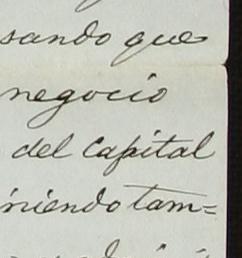 sando que
negocio
del capital
niendo tam=